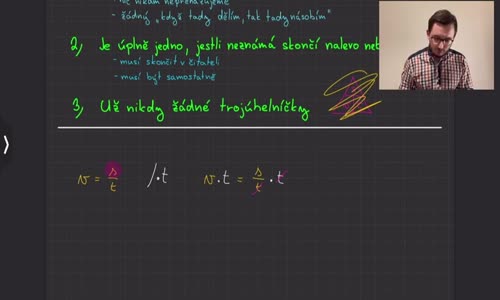 nic nikam nepřehazujeme
- žádný „když tady dělím, tak tady násobím"
2, Je úplně jedno, jestli neznámá skončí nalevo
- musí skončit v čitateli
- musí být samostatně
3, Už nikdy žádné trojúhelníčky
v = s/t /·t v·t = s/t · t